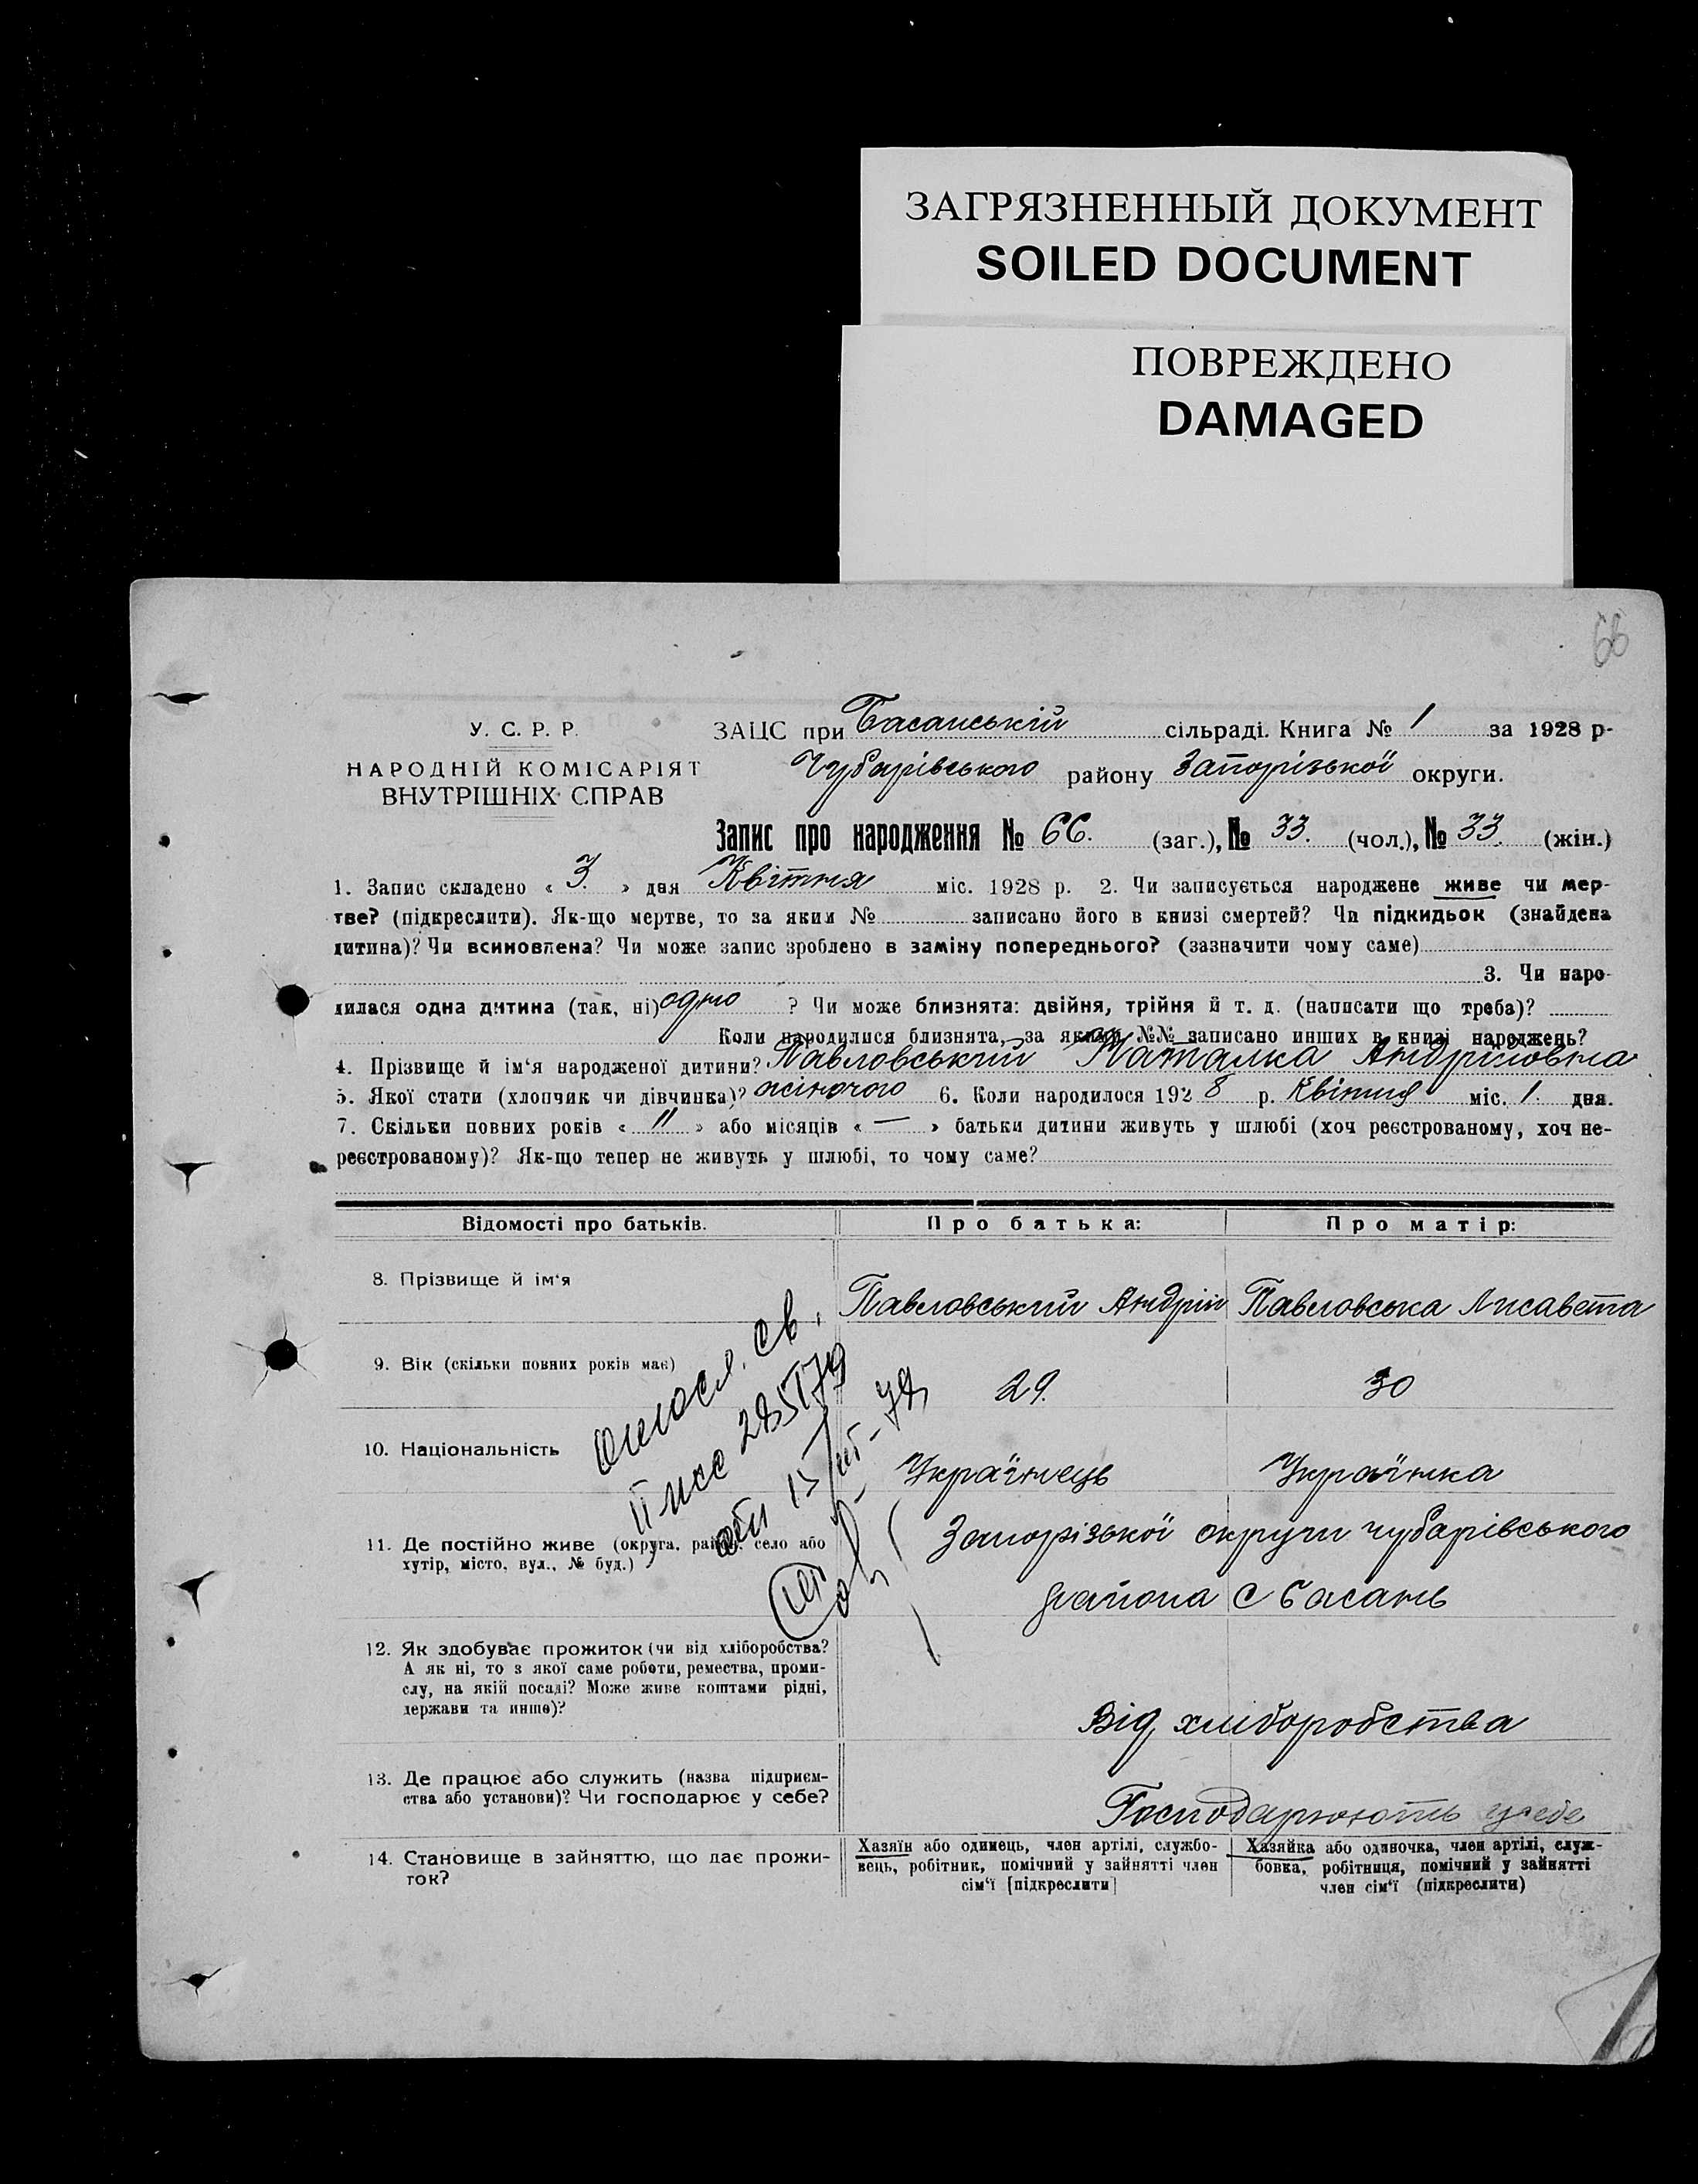 ЗАГРЯЗНЕННЫЙ ДОКУМЕНТ
SOILED DOCUMENT
ПОВРЕЖДЕНО
DAMAGED
66
У. С. Р. Р.
НАРОДНІЙ КОМІСАРІЯТ
ВНУТРІШНІХ СПРАВ
ЗАЦС при Басанській сільраді. Книга № 1 за 1928 р-
Чубарівського району Запорізької округи.
Запис про народження № 66. (заг.), № 33. (чол.), № 33. (жін.)
1. Запис складено « 3. » дня Квітня міс. 1928 р. 2. Чи записується народжене живе чи мер-
тве? (підкреслити). Як-що мертве, то за яким № записано його в книзі смертей? Чи підкидьок (знайдена
дитина)? Чи всиновлена? Чи може запис зроблено в заміну попереднього? (зазначити чому саме)
3. Чи наро-
дилася одна дитина (так, ні) одно ? Чи може близнята: двійня, трійня й т. д. (написати що треба)?
Коли народилися близнята, за якими №№ записано инших в книзі народжень?
4. Прізвище й ім'я народженої дитини? Павловський Наталка Андріївна
5. Якої стати (хлопчик чи дівчинка)? жіночого 6. Коли народилося 1928 р. Квітня міс. 1. дня.
7. Скільки повних років « 11 » або місяців « — » батьки дитини живуть у шлюбі (хоч реєстрованому, хоч не-
реєстрованому)? Як-що тепер не живуть у шлюбі, то чому саме?
Відомості про батьків. Про батька: Про матір:
8. Прізвище й ім'я Павловський Андрій Павловська Лисавета
9. Вік (скільки повних років має) 29. 30
10. Національність Українець Українка
11. Де постійно живе (округа, район, село або
хутір, місто, вул., № буд.)
Запорізької округи чубарівського
района с Басань
12. Як здобуває прожиток (чи від хліборобства?
А як ні, то з якої саме роботи, ремества, проми-
слу, на якій посаді? Може живе коштами рідні,
держави та инше)?
Від хліборобства
13. Де працює або служить (назва підприєм-
ства або установи)? Чи господарює у себе?
Господарюють у себе
14. Становище в зайняттю, що дає прожи-
ток?
Хазяїн або одинець, член артілі, службо-
вець, робітник, помічний у зайнятті член
сім'ї [підкреслити]
Хазяйка або одиночка, член артілі, служ-
бовка, робітниця, помічний у зайнятті
член сім'ї (підкреслити)